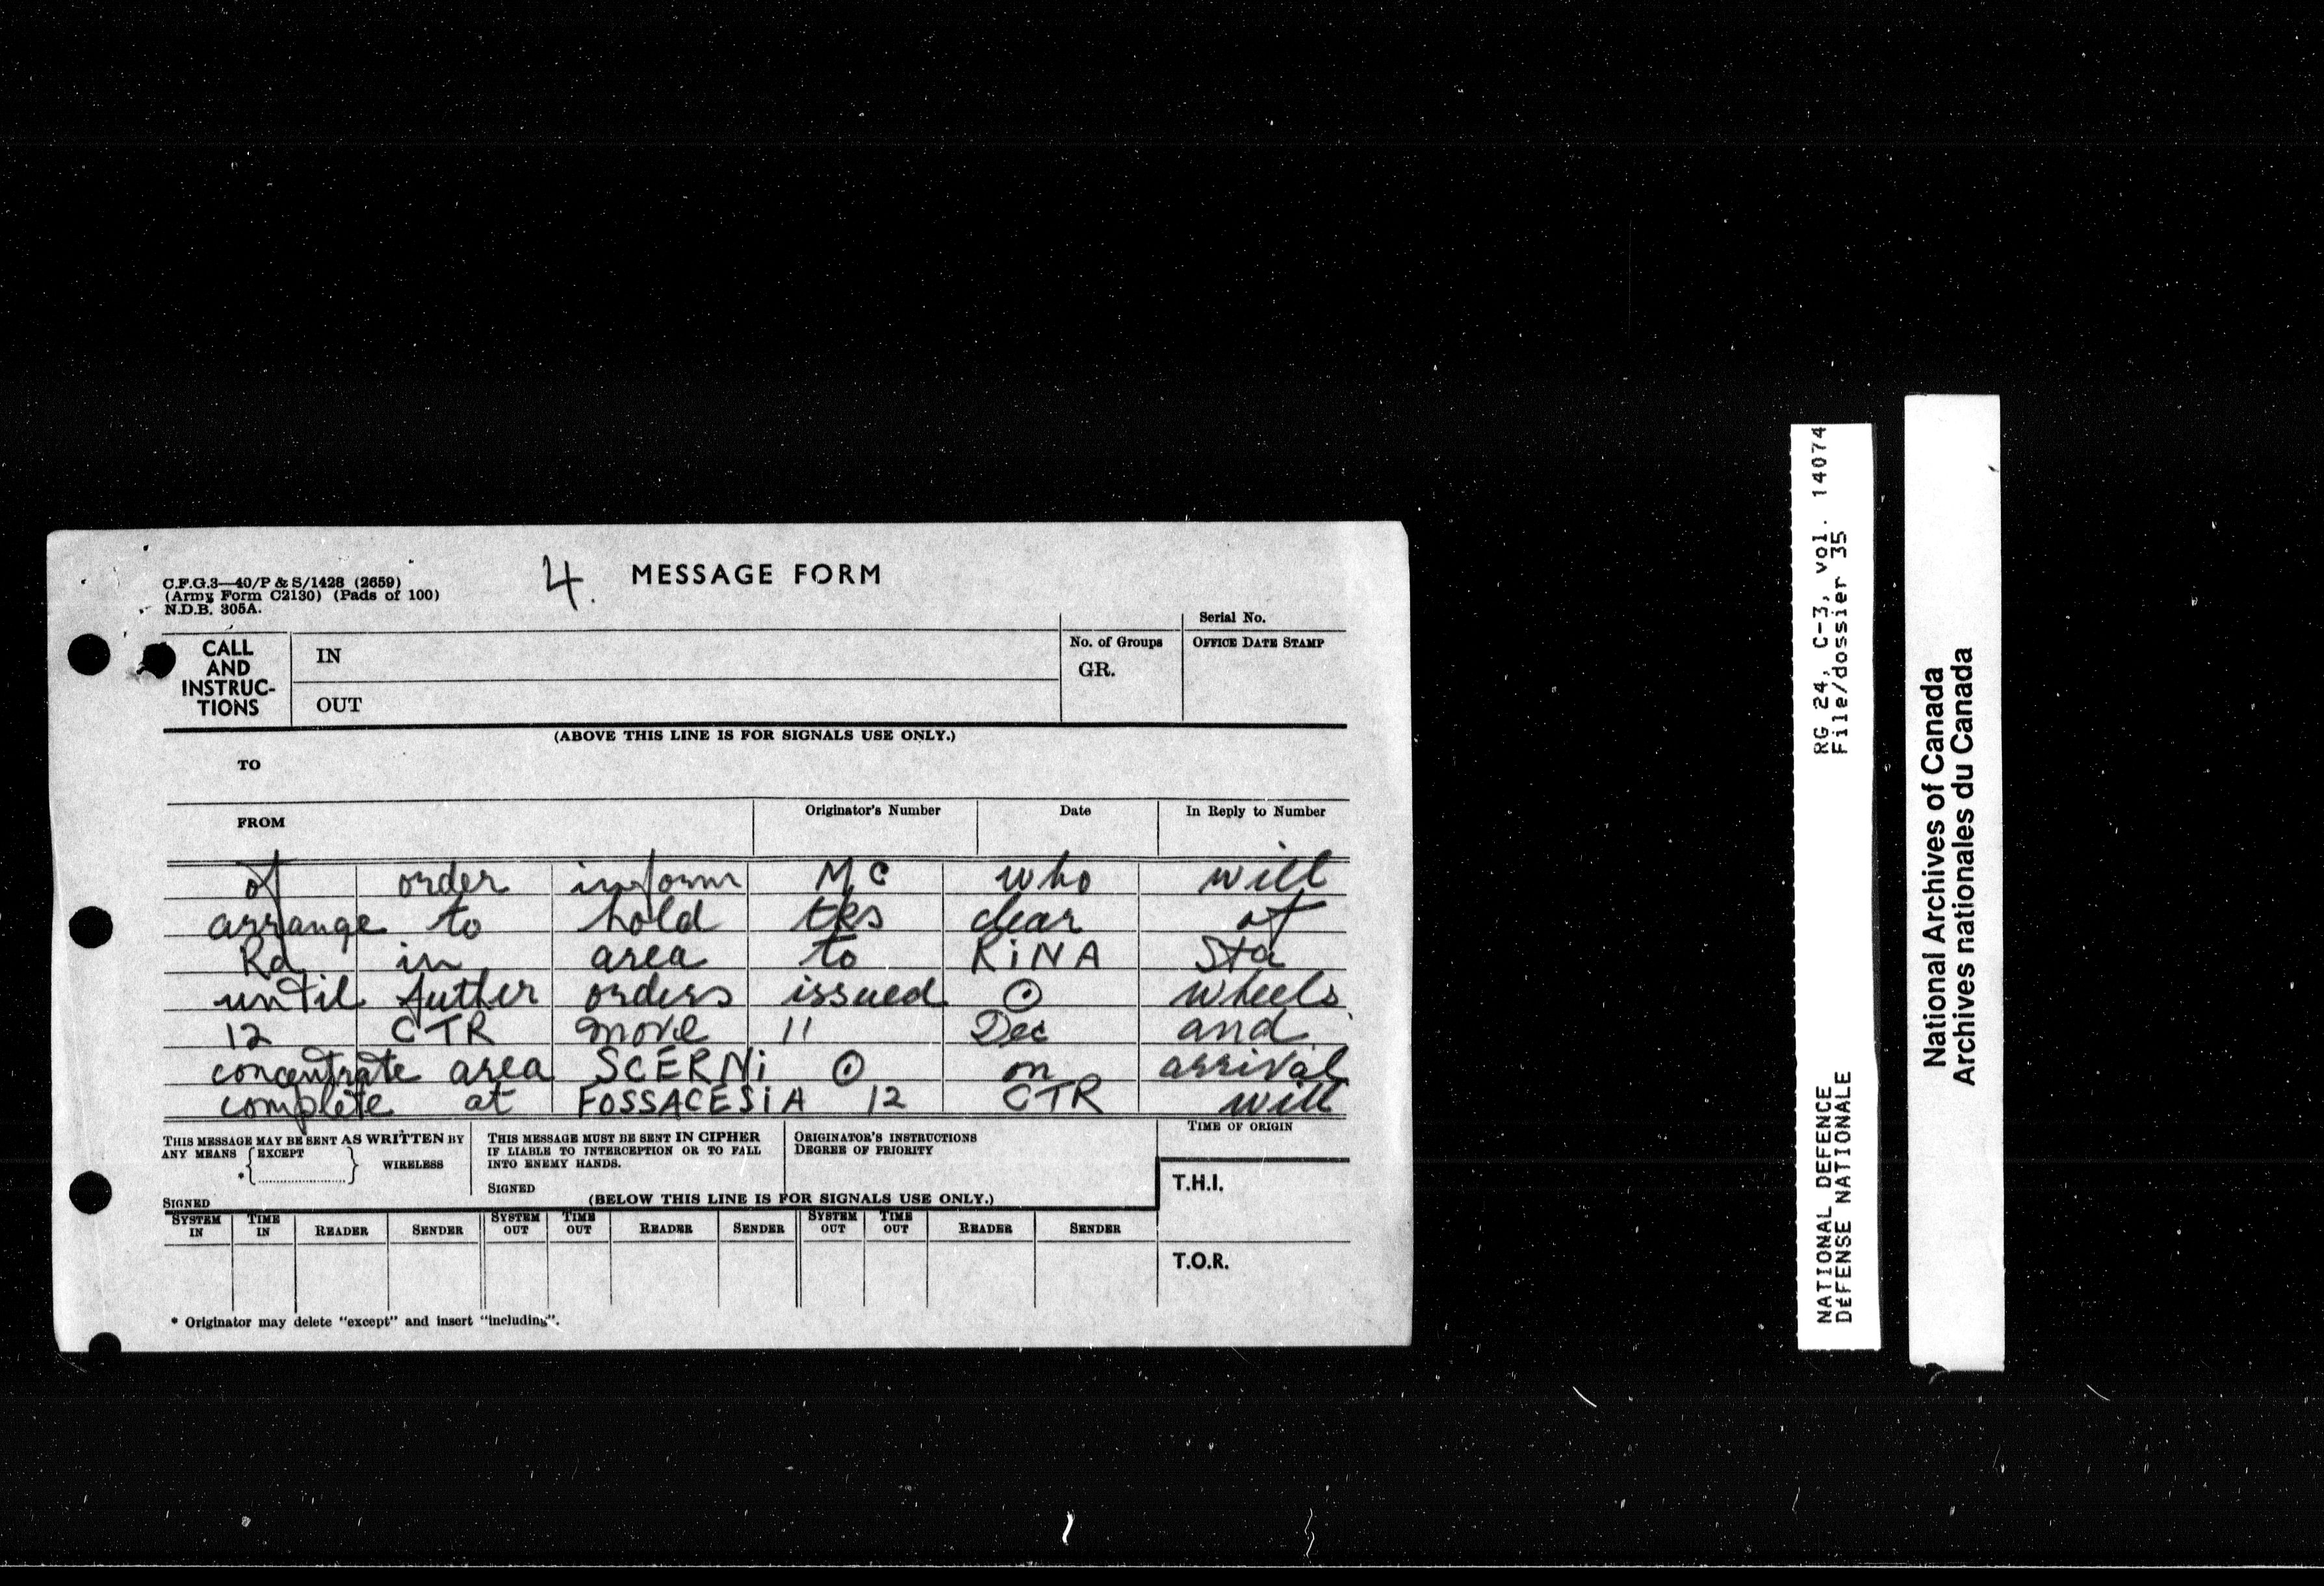 C.F.G.3—40/P & S/1428 (2659)
(Army Form C2130) (Pads of 100)
N.D.B. 305A.
4.
MESSAGE FORM
Serial No.
CALL
AND
INSTRUC-
TIONS
IN
OUT
No. of Groups
GR.
OFFICE DATE STAMP
(ABOVE THIS LINE IS FOR SIGNALS USE ONLY.)
TO
FROM
Originator's Number
Date
In Reply to Number
of order inform MC who will
arrange to hold tks clear of
Rd in area to RiNA Sta
until futher orders issued ⊙ wheels
12 CTR move 11 Dec and
concentrate area SCERNi ⊙ on arrival
complete at FOSSACESiA 12 CTR will
THIS MESSAGE MAY BE SENT AS WRITTEN BY
ANY MEANS { EXCEPT } WIRELESS
*{..................}
SIGNED
THIS MESSAGE MUST BE SENT IN CIPHER
IF LIABLE TO INTERCEPTION OR TO FALL
INTO ENEMY HANDS.
SIGNED
ORIGINATOR'S INSTRUCTIONS
DEGREE OF PRIORITY
TIME OF ORIGIN
T.H.I.
(BELOW THIS LINE IS FOR SIGNALS USE ONLY.)
SYSTEM IN TIME IN READER SENDER SYSTEM OUT TIME OUT READER SENDER SYSTEM OUT TIME OUT READER SENDER
T.O.R.
* Originator may delete "except" and insert "including".
RG 24, C-3, vol. 14074
File/dossier 35
NATIONAL DEFENCE
DÉFENSE NATIONALE
National Archives of Canada
Archives nationales du Canada